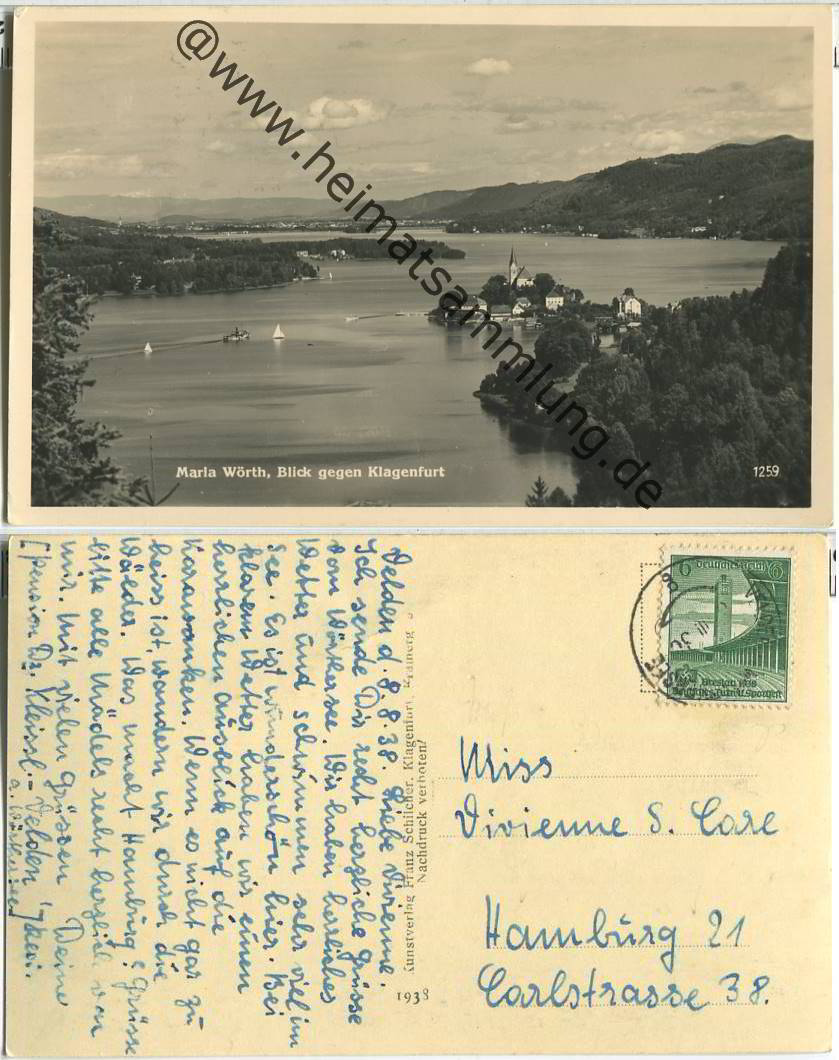 @www.heimatsammlung.de
Maria Wörth, Blick gegen Klagenfurt
1259
Velden d. 8.8.38. Liebe Vivienne.
Ich sende Dir recht herzliche Grüsse
vom Wörtersee. Wir haben herrliches
Wetter und schwimmen sehr viel im
See. Es ist wunderschön hier. Bei
klarem Wetter haben wir einen
herrlichen Ausblick auf die
Karawanken. Wenn es nicht gar zu
heiss ist, wandern wir durch die
Wälder. Was macht Hamburg? Grüsse
bitte alle Mädels recht herzlich von
mir. Mit vielen Grüssen Deine
[Pension Dr. Kleissl. - Velden
a. Wörthersee]
Kunstverlag Franz Schilcher, Klagenfurt
Nachdruck verboten!
1938
Deutsches Reich 6
Breslau 1938
Deutsches Turn- u. Sportfest
Miss
Vivienne S. Core
Hamburg 21
Carlstrasse 38.